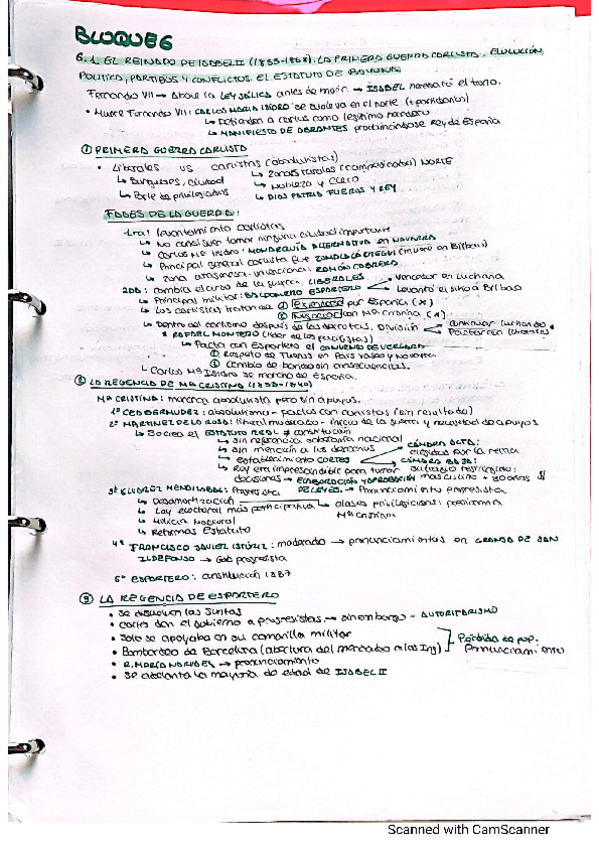 BLOQUE 6
6.1. EL REINADO DE ISABEL II (1833-1868). LA PRIMERA GUERRA CARLISTA. EVOLUCIÓN
POLÍTICA, PARTIDOS Y CONFLICTOS. EL ESTATUTO DE
Fernando VII → Abole la LEY SÁLICA antes de morir → ISABEL heredará el trono.
• Muere Fernando VII: CARLOS MARIA ISIDRO se subleva en el norte (+ partidarios)
↳ Defienden a Carlos como legítimo heredero
↳ MANIFIESTO DE ABRANTES proclamándose Rey de España
① PRIMERA GUERRA CARLISTA
• Liberales vs carlistas (absolutistas)
↳ Burgueses, ciudad ↳ Zonas rurales (campesinado) NORTE
↳ Parte de privilegiados ↳ Nobleza y Clero
↳ DIOS PATRIA FUEROS Y REY
FASES DE LA GUERRA:
1ra: levantamiento carlistas
↳ No consiguen tomar ninguna ciudad importante
↳ Carlos Mª Isidro: MONARQUÍA ALTERNATIVA en NAVARRA
↳ Principal general carlista fue ZUMALACÁRREGUI (muere en Bilbao)
↳ Zona aragonesa-valenciana: RAMÓN CABRERO
2DA: cambia el curso de la guerra, LIBERALES
↳ Principal militar: BALDOMERO ESPARTERO → Vencedor en Luchana
→ Levantó el sitio a Bilbao
↳ Los carlistas tratan de ① Expandirse por España (x)
② Negociar con Mª Cristina (x)
↳ Dentro del carlismo después de las derrotas. División → Continuar luchando
→ Pactar con liberales
* RAFAEL MONTERO (líder de los pacifistas)
↳ Pacta con Espartero el CONVENIO DE VERGARA
① Respeto de Fueros en País Vasco y Navarra
② Cambio de bando sin consecuencias.
↳ Carlos Mª Isidro se marcha de España.
② LA REGENCIA DE Mª CRISTINA (1833-1840)
Mª CRISTINA: monarca absolutista pero sin apoyos.
1º CEA BERMUDEZ: absolutismo - pactos con carlistas (sin resultado)
2º MARTINEZ DE LA ROSA: liberal moderado - inicio de la guerra y necesidad de apoyos
↳ Se crea el ESTATUTO REAL ≠ constitución
↳ sin referencia soberanía nacional
↳ sin mención a los derechos
↳ establecimiento CORTES → CÁMARA ALTA: elegidas por la reina
→ CÁMARA BAJA: sufragio restringido: masculino + 30 años
↳ Rey era imprescindible para tomar decisiones → ELABORACIÓN Y APROBACIÓN DE LEYES. → Pronunciamiento progresista
3º ÁLVAREZ MENDIZABAL: Progresista
↳ Desamortización → clases privilegiadas: presionan a Mª Cristina
↳ Ley electoral más participativa
↳ Milicia Nacional
↳ Reformas Estatuto
4º FRANCISCO JAVIER ISTÚRIZ: moderado → pronunciamientos en GRANJA DE SAN
ILDEFONSO → Gob progresista
5º ESPARTERO: constitución 1837
③ LA REGENCIA DE ESPARTERO
• Se disuelven las Juntas
• Cortes dan el gobierno a progresistas → sin embargo - AUTORITARISMO
• Solo se apoyaba en su camarilla militar
• Bombardeo de Barcelona (abertura del mercado a los Ing) → Pérdida de pop. Pronunciamiento
• R. MARÍA NARVÁEZ → pronunciamiento
• Se adelanta la mayoría de edad de ISABEL II
Scanned with CamScanner